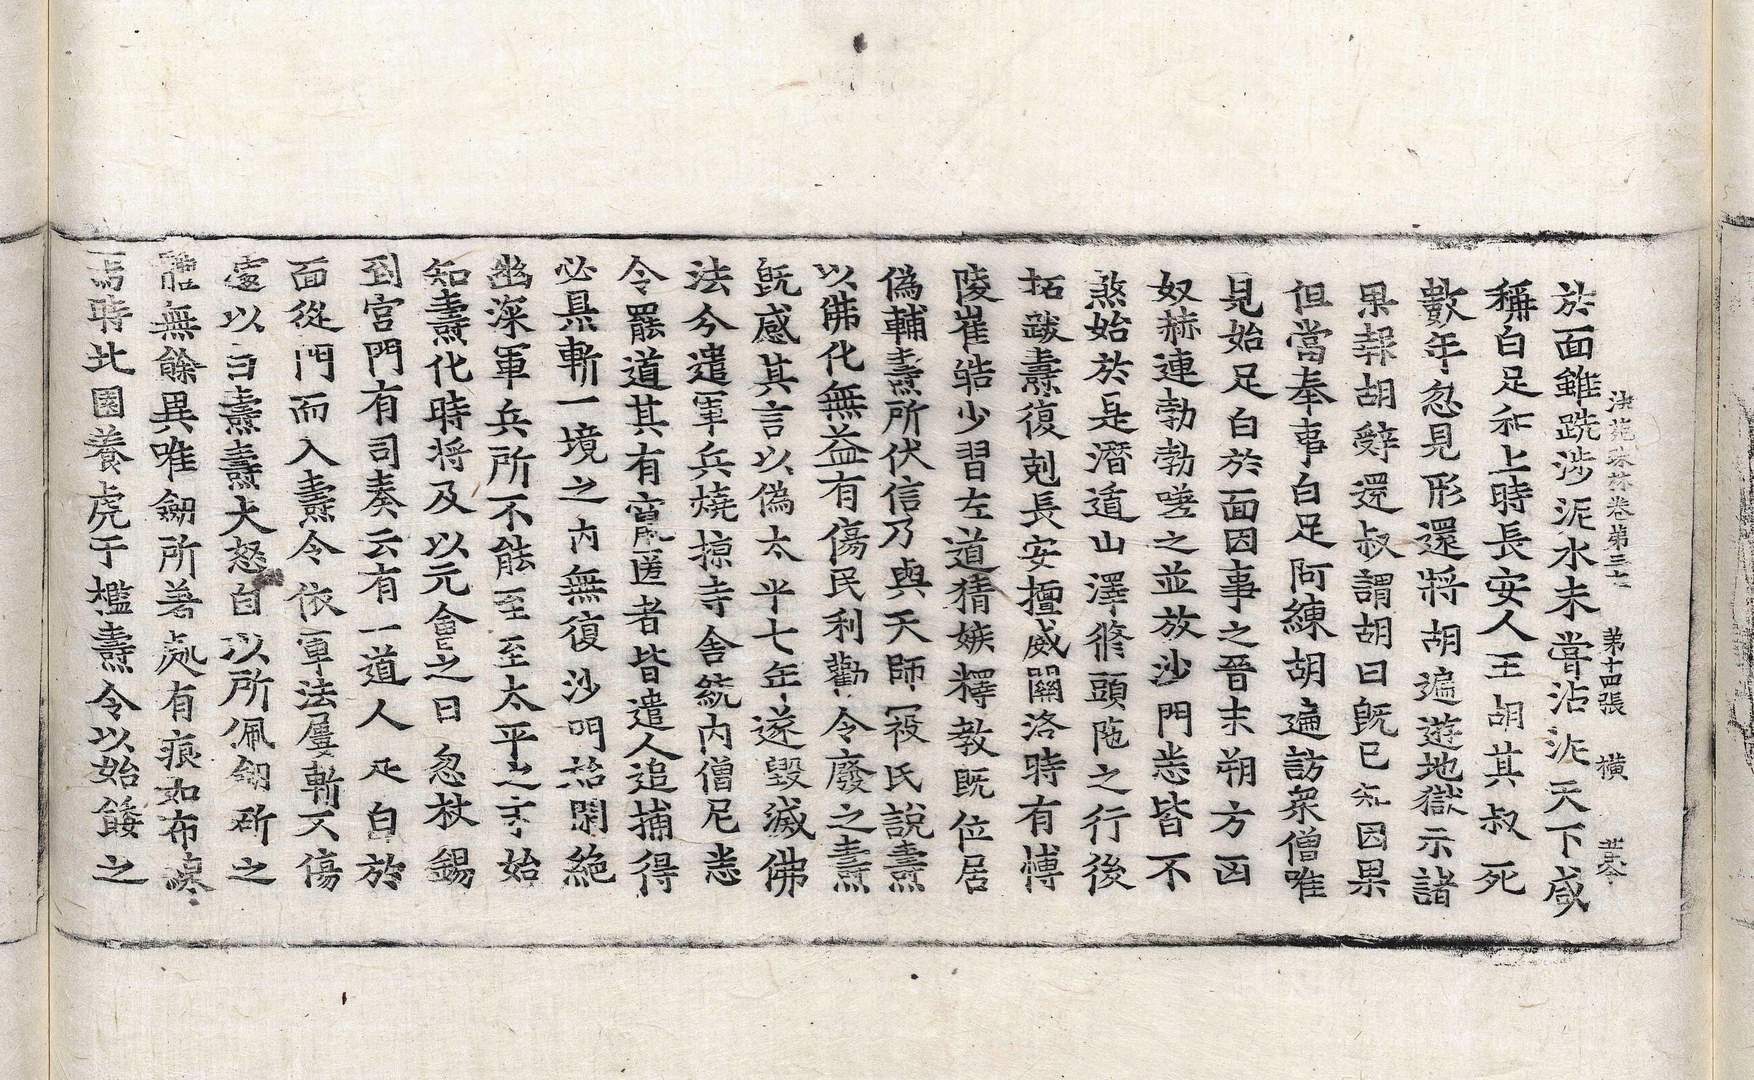 法苑珠林卷第三十 第十四張 橫
於面雖跣涉泥水未嘗沾泥天下咸
稱白足和上時長安人王胡其叔死
數年忽見形還將胡遍遊地獄示諸
果報胡辭還叔謂胡曰旣已知因果
但當奉事白足阿練胡遍訪衆僧唯
見始足白於面因事之晉末朔方凶
奴赫連勃勃嗟之並放沙門悉皆不
煞始於是潛遁山澤脩頭陁之行後
拓跋燾復剋長安擅威關洛時有愽
陵崔皓少習左道猜嫉釋教旣位居
僞輔燾所伏信乃與天師寇氏說燾
以佛化無益有傷民利勸令廢之燾
旣感其言以僞太平七年遂毀滅佛
法今遣軍兵燒掠寺舍統內僧尼悉
令罷道其有竄匿者皆遣人追捕得
必梟斬一境之內無復沙門始閑絕
幽深軍兵所不能至至太平之末始
知燾化時將及以元會之日忽杖錫
到宮門有司奏云有一道人足白於
面從門而入燾令依軍法屢斬不傷
遽以白燾燾大怒自以所佩劒斫之
體無餘異唯劒所著處有痕如布線
焉時北園養虎于檻燾令以始餧之